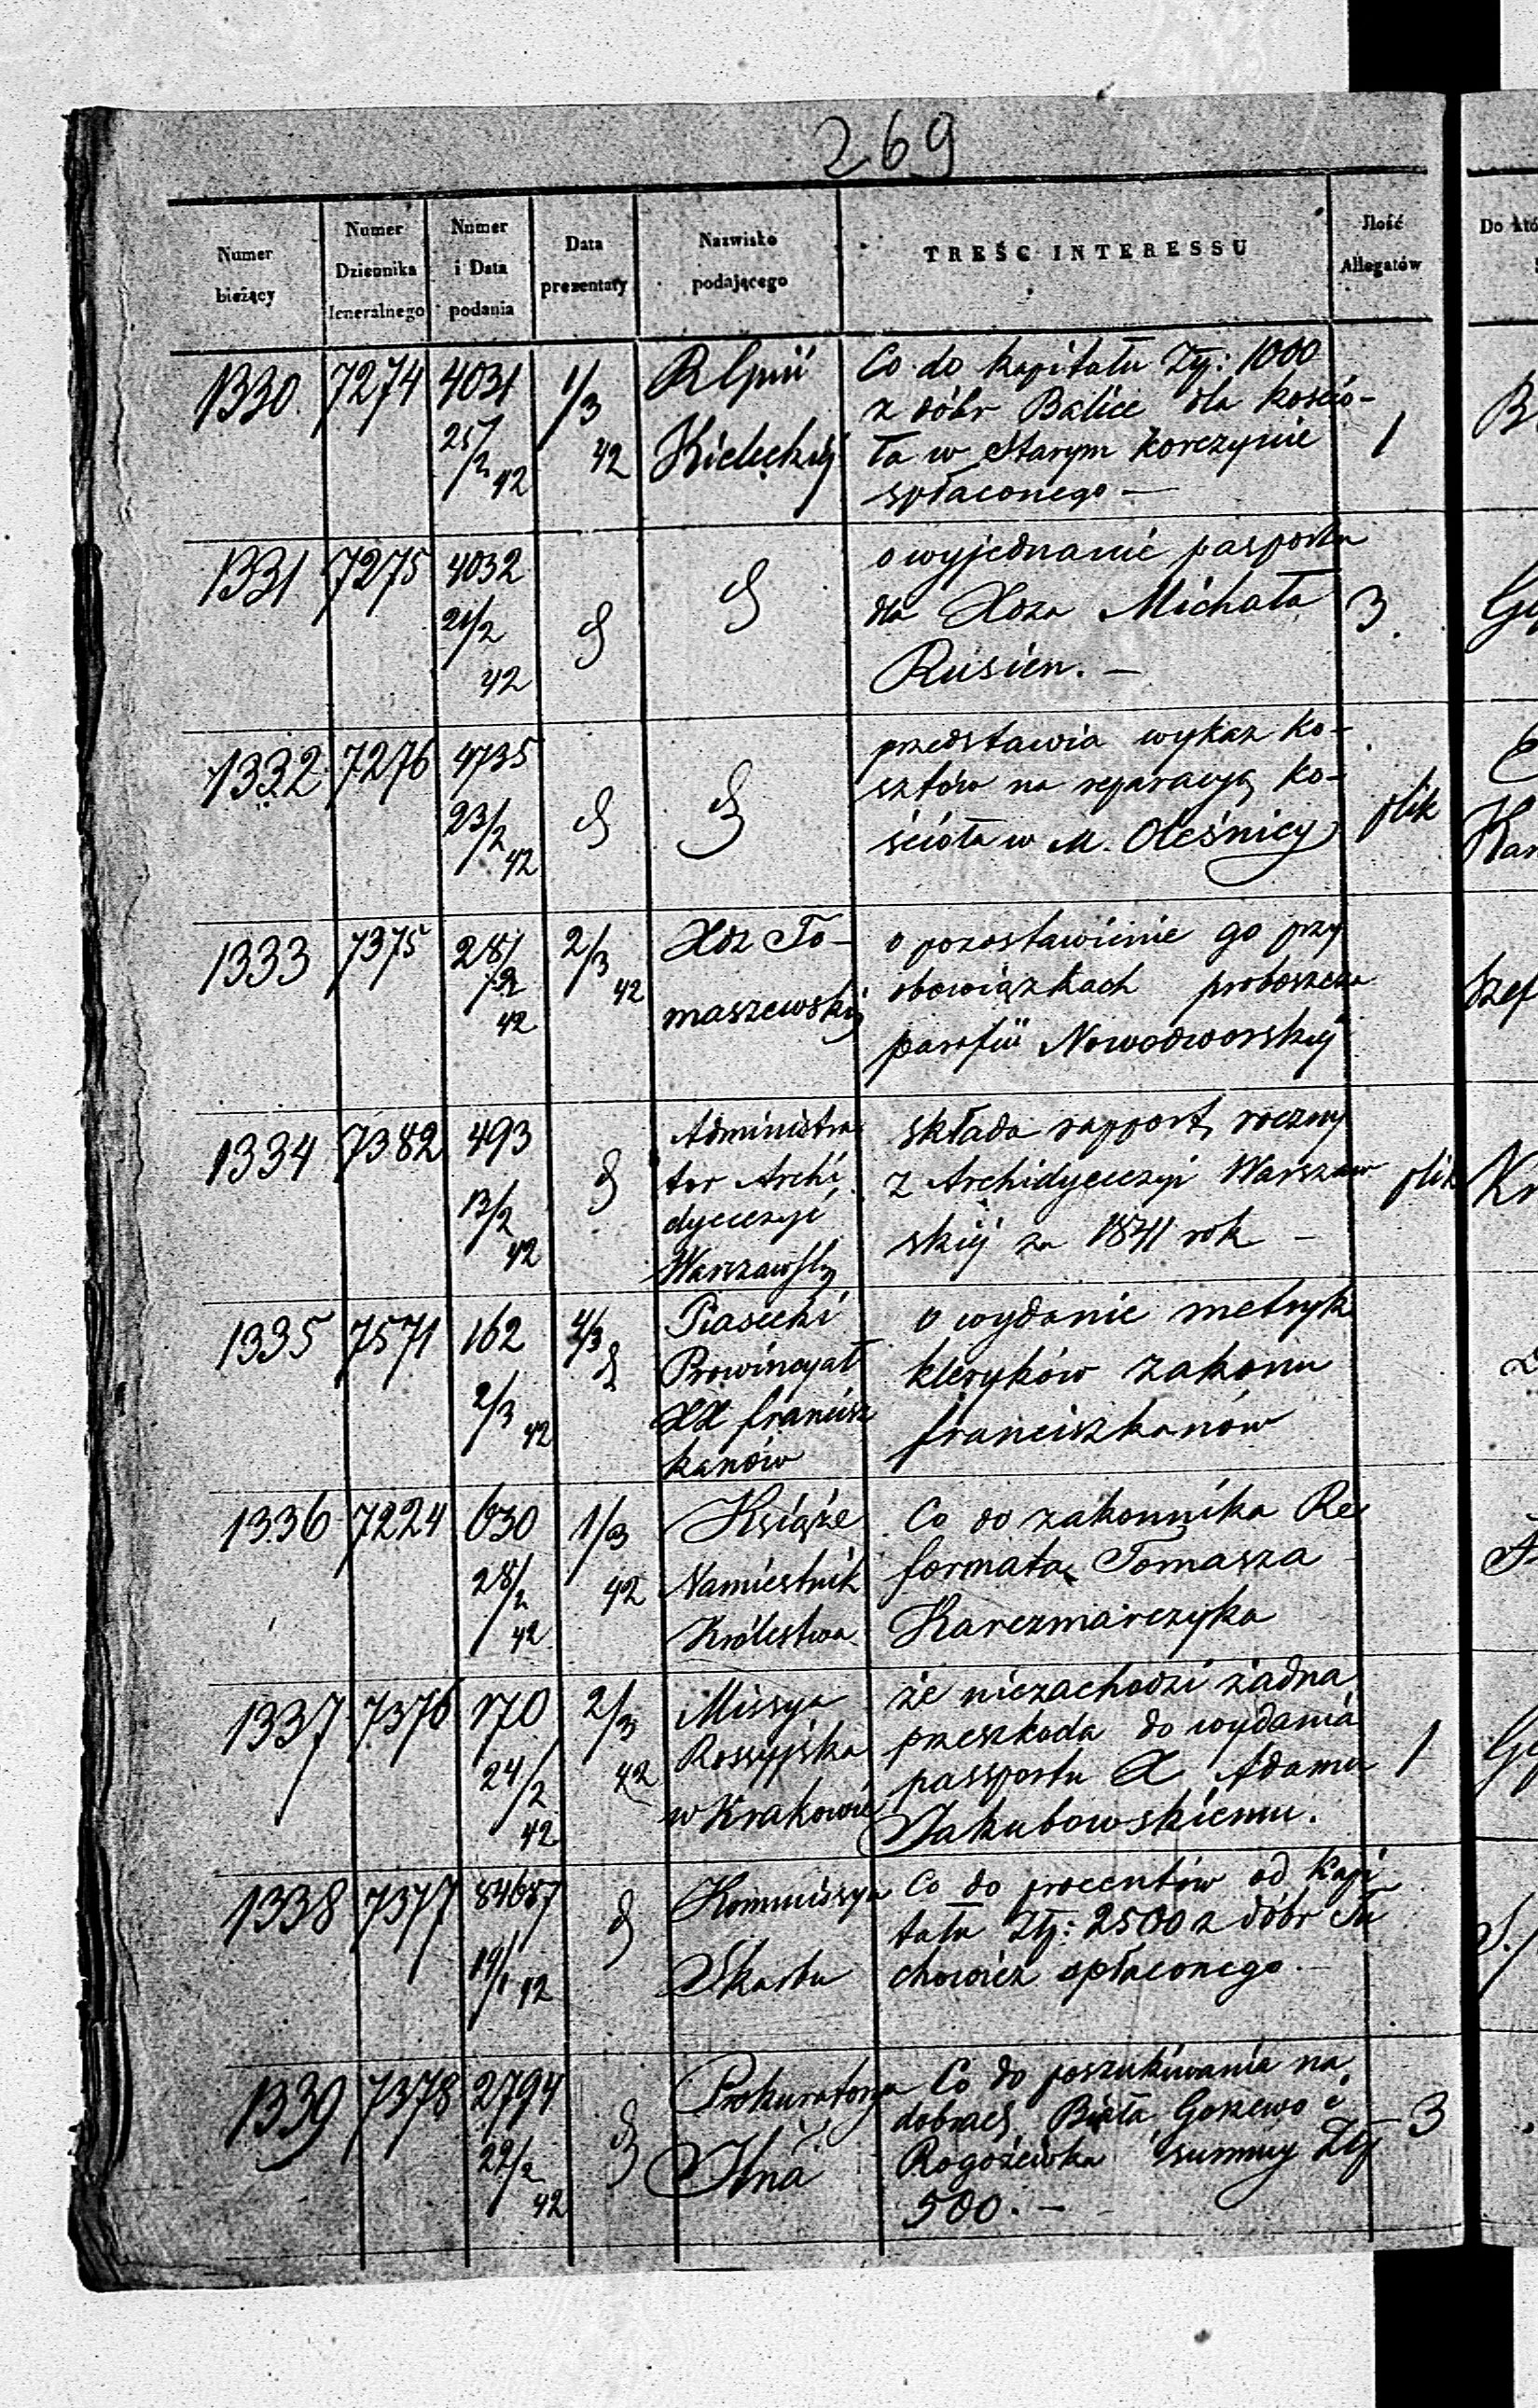 269
Numer bieżący
Numer Dziennika Jeneralnego
Numer i Data podania
Data prezentaty
Nazwisko podającego
TREŚĆ INTERESSU
Ilość Allegatów
Do któ
1330. 7274 4031 1/3 Co do kapitału Złp: 1000
25/2 42 42 Kieleckiej z dóbr Balice dla kościo- 1
ła w Starym Korczynie
spłaconego —
1331 7275 4032 o wyjednanie pasportu
21/2 dla Xdza Michała 3.
42 Rusien. —
1332 7276 4735 przedstawia wykaz ko-
23/2 sztów na reparacyą ko- plik
42 ścioła w M. Oleśnicy
Kar
1333 7375 28/2 2/3 Xdz To- o pozostawienie go przy
42 42 maszewski obowiązkach proboszcza
parafii Nowodworskiej
1334 7382 493 Administra składa rapport roczny
13/2 tor Archi z Archidyecezyi Warszaw plik
42 dyecezyi skiej za 1841 rok —
Warszawsky
1335 7571 162 4/3 Piasecki o wydanie metryk
2/3 Prowincyał kleryków zakonu
42 XX francisz franciszkanów
kanów
1336 7224 630 1/3 Książe Co do zakonnika Re
28/2 42 Namiestnik formata Tomasza
42 Królestwa Karczmarczyka
1337 7376 170 2/3 Missya że niezachodzi żadna
24/2 42 Rossyjska przeszkoda do wydania
42 w Krakowie passportu X Adamu 1
Jakubowskiemu.
1338 7377 84687 Kommissya Co do procentów od kapi
19/1 42 Skarbu tału Złp: 2500 z dóbr Tu
chowicz spłaconego. —
1339 7378 2794 Prokuratorya Co do poszukiwania na
22/2 dobrach Biała Gorzewo i 3
42 Rogoziewka summy Złp
500. —